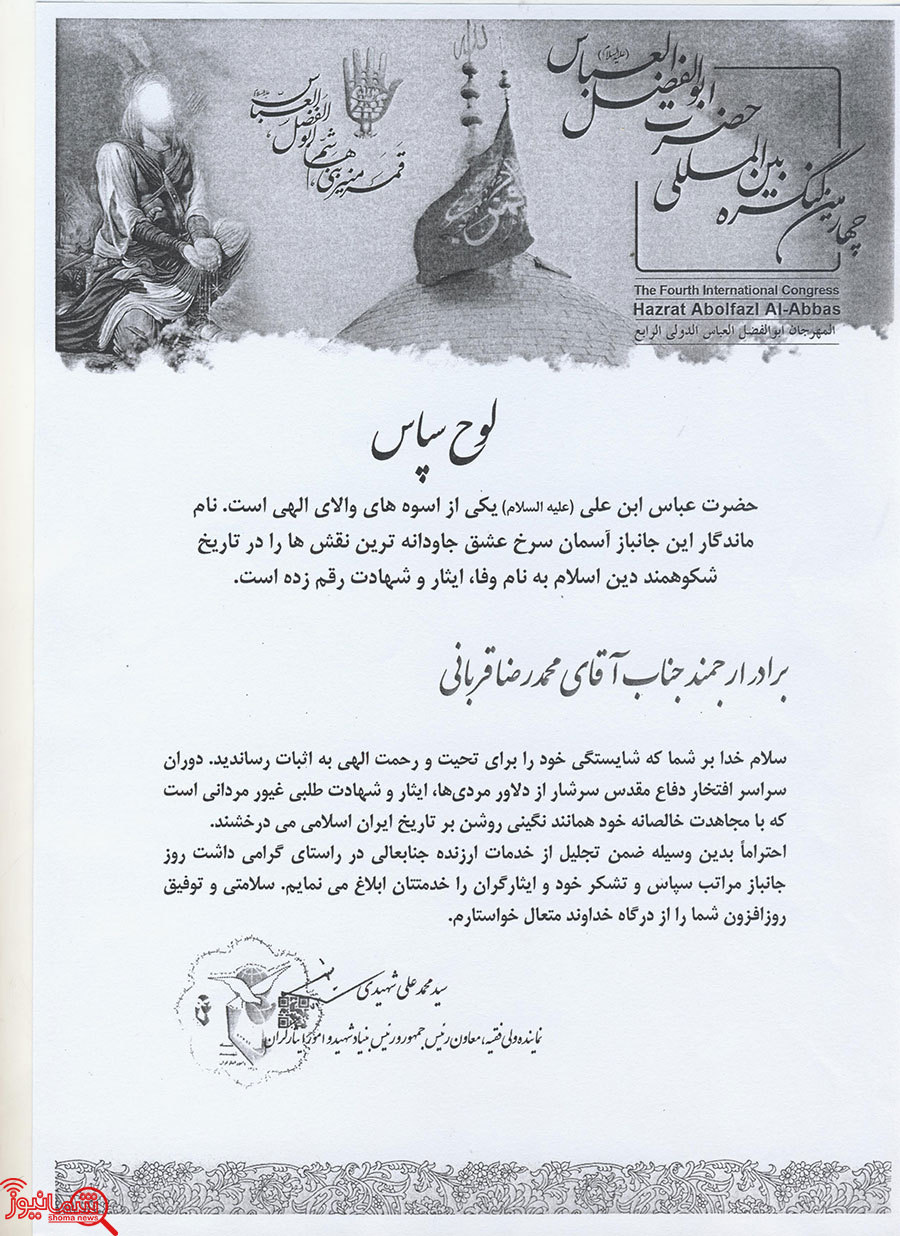 چهارمین کنگره
بین المللی
حضرت
ابوالفضل العباس (علیه السلام)
قمر منیر بنی هاشم،
ابوالفضل العباس
The Fourth International Congress
Hazrat Abolfazl Al-Abbas
المهرجان ابوالفضل العباس الدولی الرابع
لوح سپاس
حضرت عباس ابن علی (علیه السلام) یکی از اسوه های والای الهی است. نام
ماندگار این جانباز آسمان سرخ عشق جاودانه ترین نقش ها را در تاریخ
شکوهمند دین اسلام به نام وفا، ایثار و شهادت رقم زده است.
برادر ارجمند جناب آقای محمدرضا قربانی
سلام خدا بر شما که شایستگی خود را برای تحیت و رحمت الهی به اثبات رساندید. دوران
سراسر افتخار دفاع مقدس سرشار از دلاور مردی‌ها، ایثار و شهادت طلبی غیور مردانی است
که با مجاهدت خالصانه خود همانند نگینی روشن بر تاریخ ایران اسلامی می درخشند.
احتراماً بدین وسیله ضمن تجلیل از خدمات ارزنده جنابعالی در راستای گرامی داشت روز
جانباز مراتب سپاس و تشکر خود و ایثارگران را خدمتتان ابلاغ می نمایم. سلامتی و توفیق
روزافزون شما را از درگاه خداوند متعال خواستارم.
سید محمد علی شهیدی
نماینده ولی فقیه، معاون رئیس جمهور و رئیس بنیاد شهید و امور ایثارگران
شمانیوز
shoma news